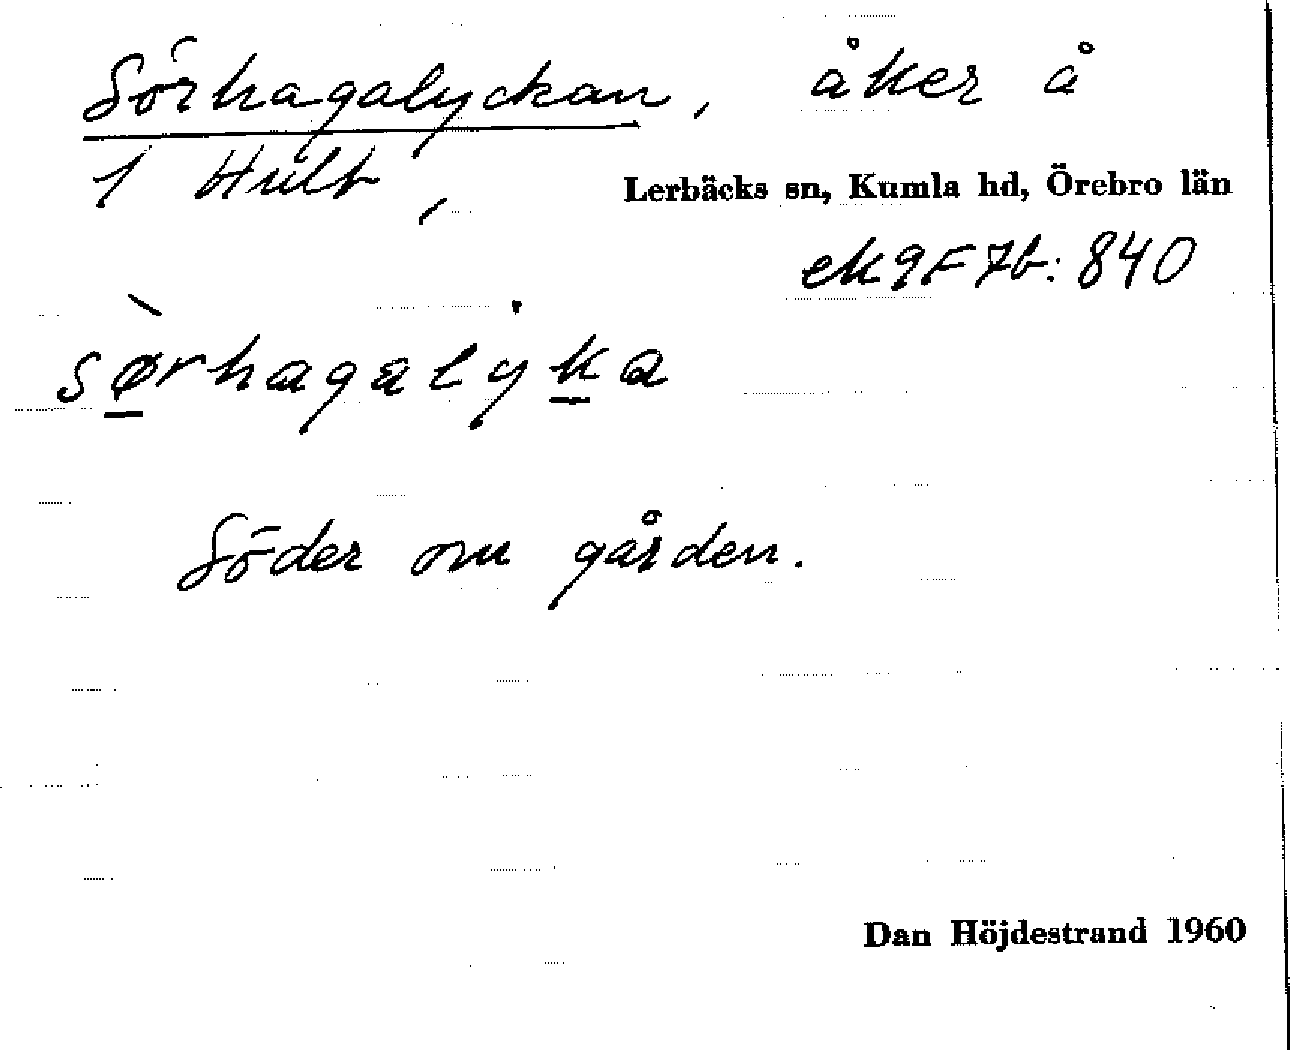 Sörhagalyckan, åker å
1 Hult,
Lerbäcks sn, Kumla hd, Örebro län
ek 9F7b:840
sø̀rhagalẏka
Söder om gården.
Dan Höjdestrand 1960